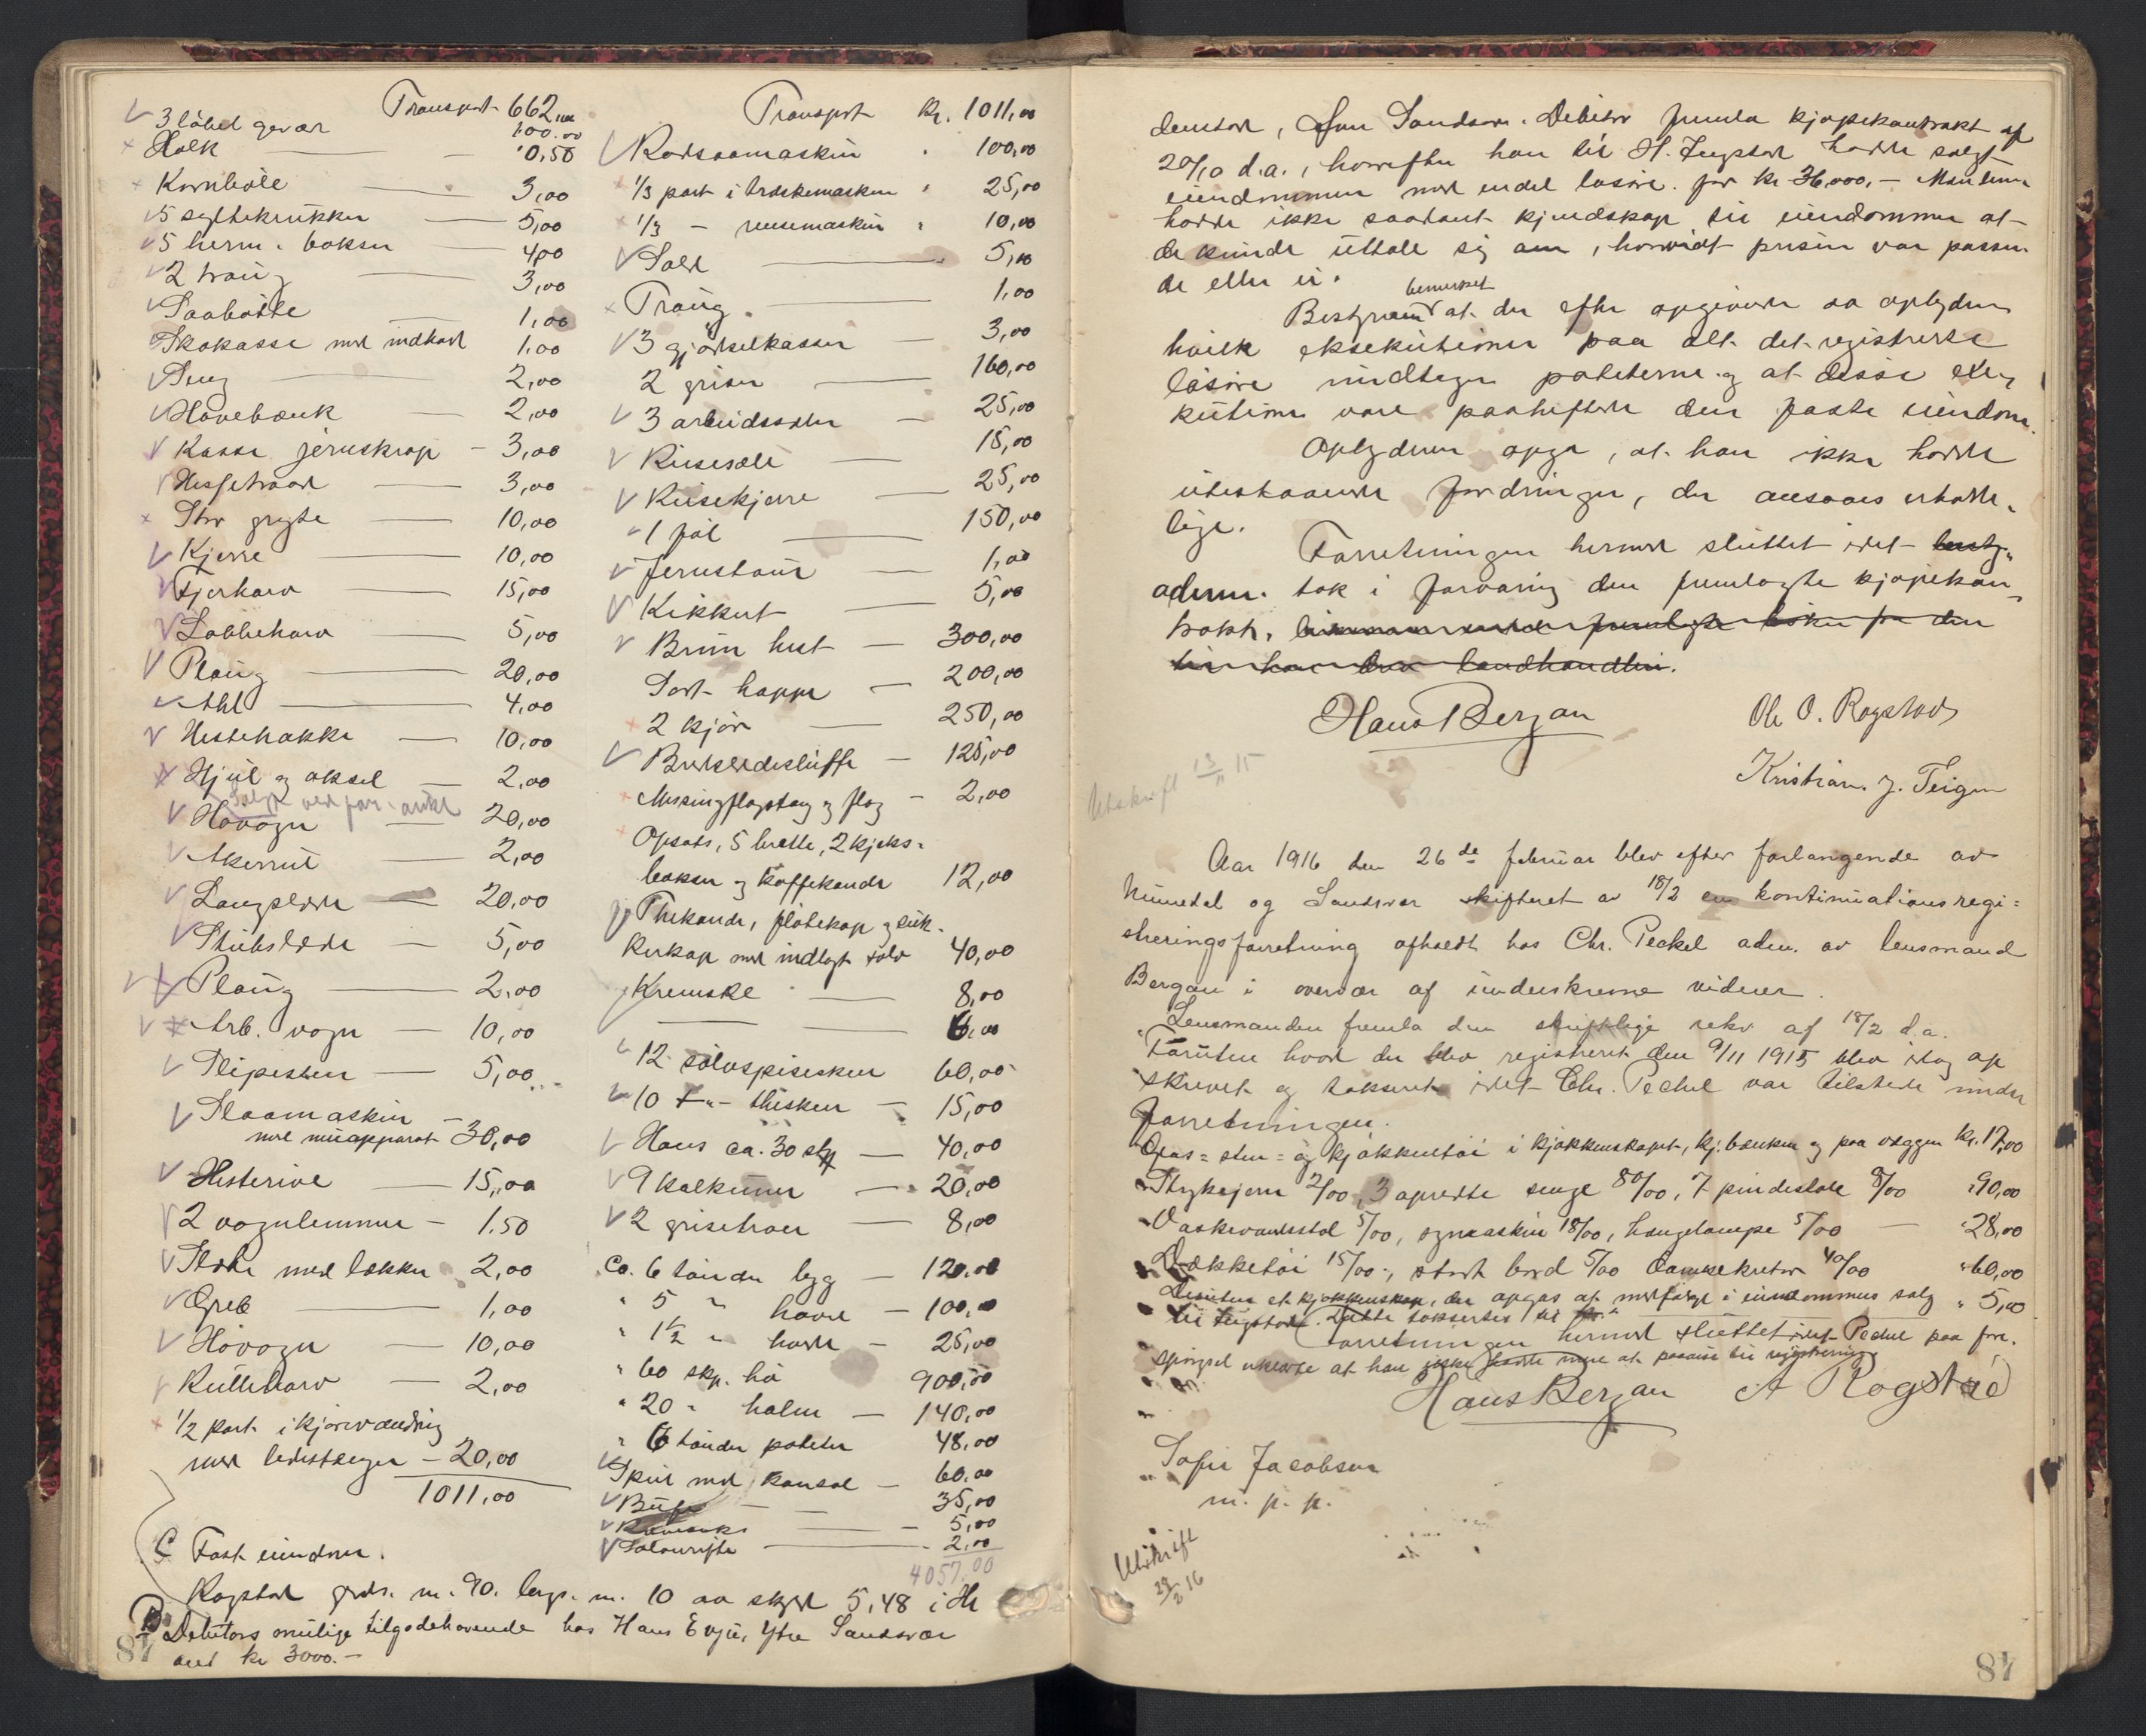 Transport 662,00
3 løbet gevær 100.00
Holk — 0,50
Kornbøle — 3,00
5 syltekrukker — 5,00
5 herm. bokser — 4,00
2 traug — 3,00
Saabøtte — 1,00
Skokasse med indhold 1,00
Seng — 2,00
Høvebænk — 2,00
Kasse jernskrap — 3,00
Hesjetraad — 3,00
Stor gryte — 10,00
Kjerre — 10,00
Fjærharv — 15,00
Labbeharv — 5,00
Plaug — 20,00
Ahl — 4,00
Hestehakke — 10,00
Hjul og aksel — 2,00
Høvogn — 20,00
Akerrul — 2,00
Langslede — 20,00
Stubslæde — 5,00
Plaug — 2,00
Arb. vogn — 10,00
Slipesten — 5,00
Slaamaskin —
med apparat 30,00
Hesterive — 15,00
2 vognlemmer — 1.50
Slæde med lækker 2,00
Greb — 1,00
Høvogn — 10,00
Rulleharv — 2,00
1/2 part i kjørevænding
med ledestænger — 20,00
1011,00
C Fast eiendom.
Rogstad grds. n. 90. brgs. n. 10 av skyld 5,48 i
D Debitors mulige tilgodehavende hos Hans Evju, Ytre Sandsvær
ant kr 3000.—
87
Transport Kr. 1011,00
Radsaamaskin 100,00
1/3 part i træskemaskin " 25,00
1/3 — rensemaskin " 10,00
Sold — 5,00
Traug — 1,00
3 gjødselkasser — 3,00
2 griser — 160,00
3 arbeidsseler — 25,00
Reisesæle — 15,00
Reisekjerre — 25,00
1 føl — 150,00
Jernstaur — 1,00
Kikkert — 5,00
Brun hest — 300,00
Sort hoppe — 200,00
2 kjør — 250,00
Bredsledesluffe — 125,00
Messingflagstang og flag — 2,00
Opsats, 5 brætte, 2 kjeks-
bokser og kaffekande 12,00
Thekande, fløtekop og suk-
kerkop med indlagt sølv 40,00
Kremske — 8,00
— — 6,00
12 sølvspiseskeer 60,00
10 —"— theskeer — 15,00
Høns ca. 30 stk — 40,00
9 kalkuner — 20,00
2 grisetrær — 8,00
Ca. 6 tønder byg — 120.00
" 5 " havre — 100,00
" 1 1/2 " hvete — 25,00
" 60 skp. hø 900,00
" 20 " halm — 140,00
" 6 tønder poteter 48,00
Speil med konsol — 60.00
— 35,00
— 5,00
— 2,00
4057.00
denstad, Jon Sandsvær. Debitor fremla kjøpekontrakt af
20/10 d.a., hvorefter han til H. Teigstad hadde solgt
eiendommen med endel løsøre for kr 36,000.— Mændene
hadde ikke saadant kjendskap til eiendommen at
de kunde uttale sig om, hvorvidt prisen var passen
de eller ei.
bemerket
at der efter opgivende av oplyderen
eksekutioner paa alt det registrerte
løsøre undtagen poteterne og at disse eks
kutioner være paaheftede den faste eiendom.
Oplyderen opga, at han ikke hadde
utestaaende fordringer, der ansaaes erholde-
lige.
Forretningen hermed sluttet idet
tok i forvaring den fremlagte kjøpekon-
trakt. landhandleri.
Hans Bergan Ole O. Rogstad
Kristian J. Teigen
Utskrift 13/11 15
Aar 1916 den 26de februar blev efter forlangende av
Numedal og Sandsvær skifteret av 18/2 en kontinuationsregi=
streringsforretning afholdt hos Chr. Peckel adm. av lensmand
Bergan i overvær af underskrevne vidner.
Lensmanden fremla den skriftlige rekv af 18/2 d.a.
Foruten hvad der blev registreret den 9/11 1915 blev idag op
skrevet og taksert idet Chr. Peckel var tilstede under
forretningen.
Glas= sten= og kjøkkentøi i kjøkkenskapet, kj.bænken og paa væggen Kr. 17,00
Strykejern 2/00, 3 opredte senge 80/00, 7 pindestole 8/00 " 90,00
Vaskevandsstol 5/00, symaskin 18/00, hængelampe 5/00 — " 28,00
Dækketøi 15/00, stort bord 5/00 40/00 " 60,00
Desuten et kjøkkenskap, der opgas at medfølge i eiendommens salg " 5,00
til Teigstad. Dette takseres til
Forretningen hermed sluttet idet Peckel paa fore-
spørgsel erklærte at han ikke hadde mere at paavise til registrering
Hans Bergan A Rogstad
Sofie Jacobsen
m. p. p.
Utskrift
29/2 16
87